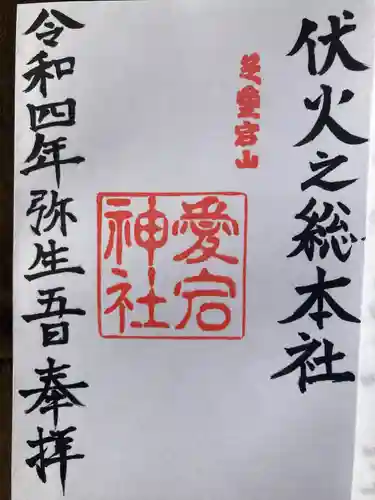 伏火之総本社
芝愛宕山
愛宕
神社
令和四年弥生五日奉拝